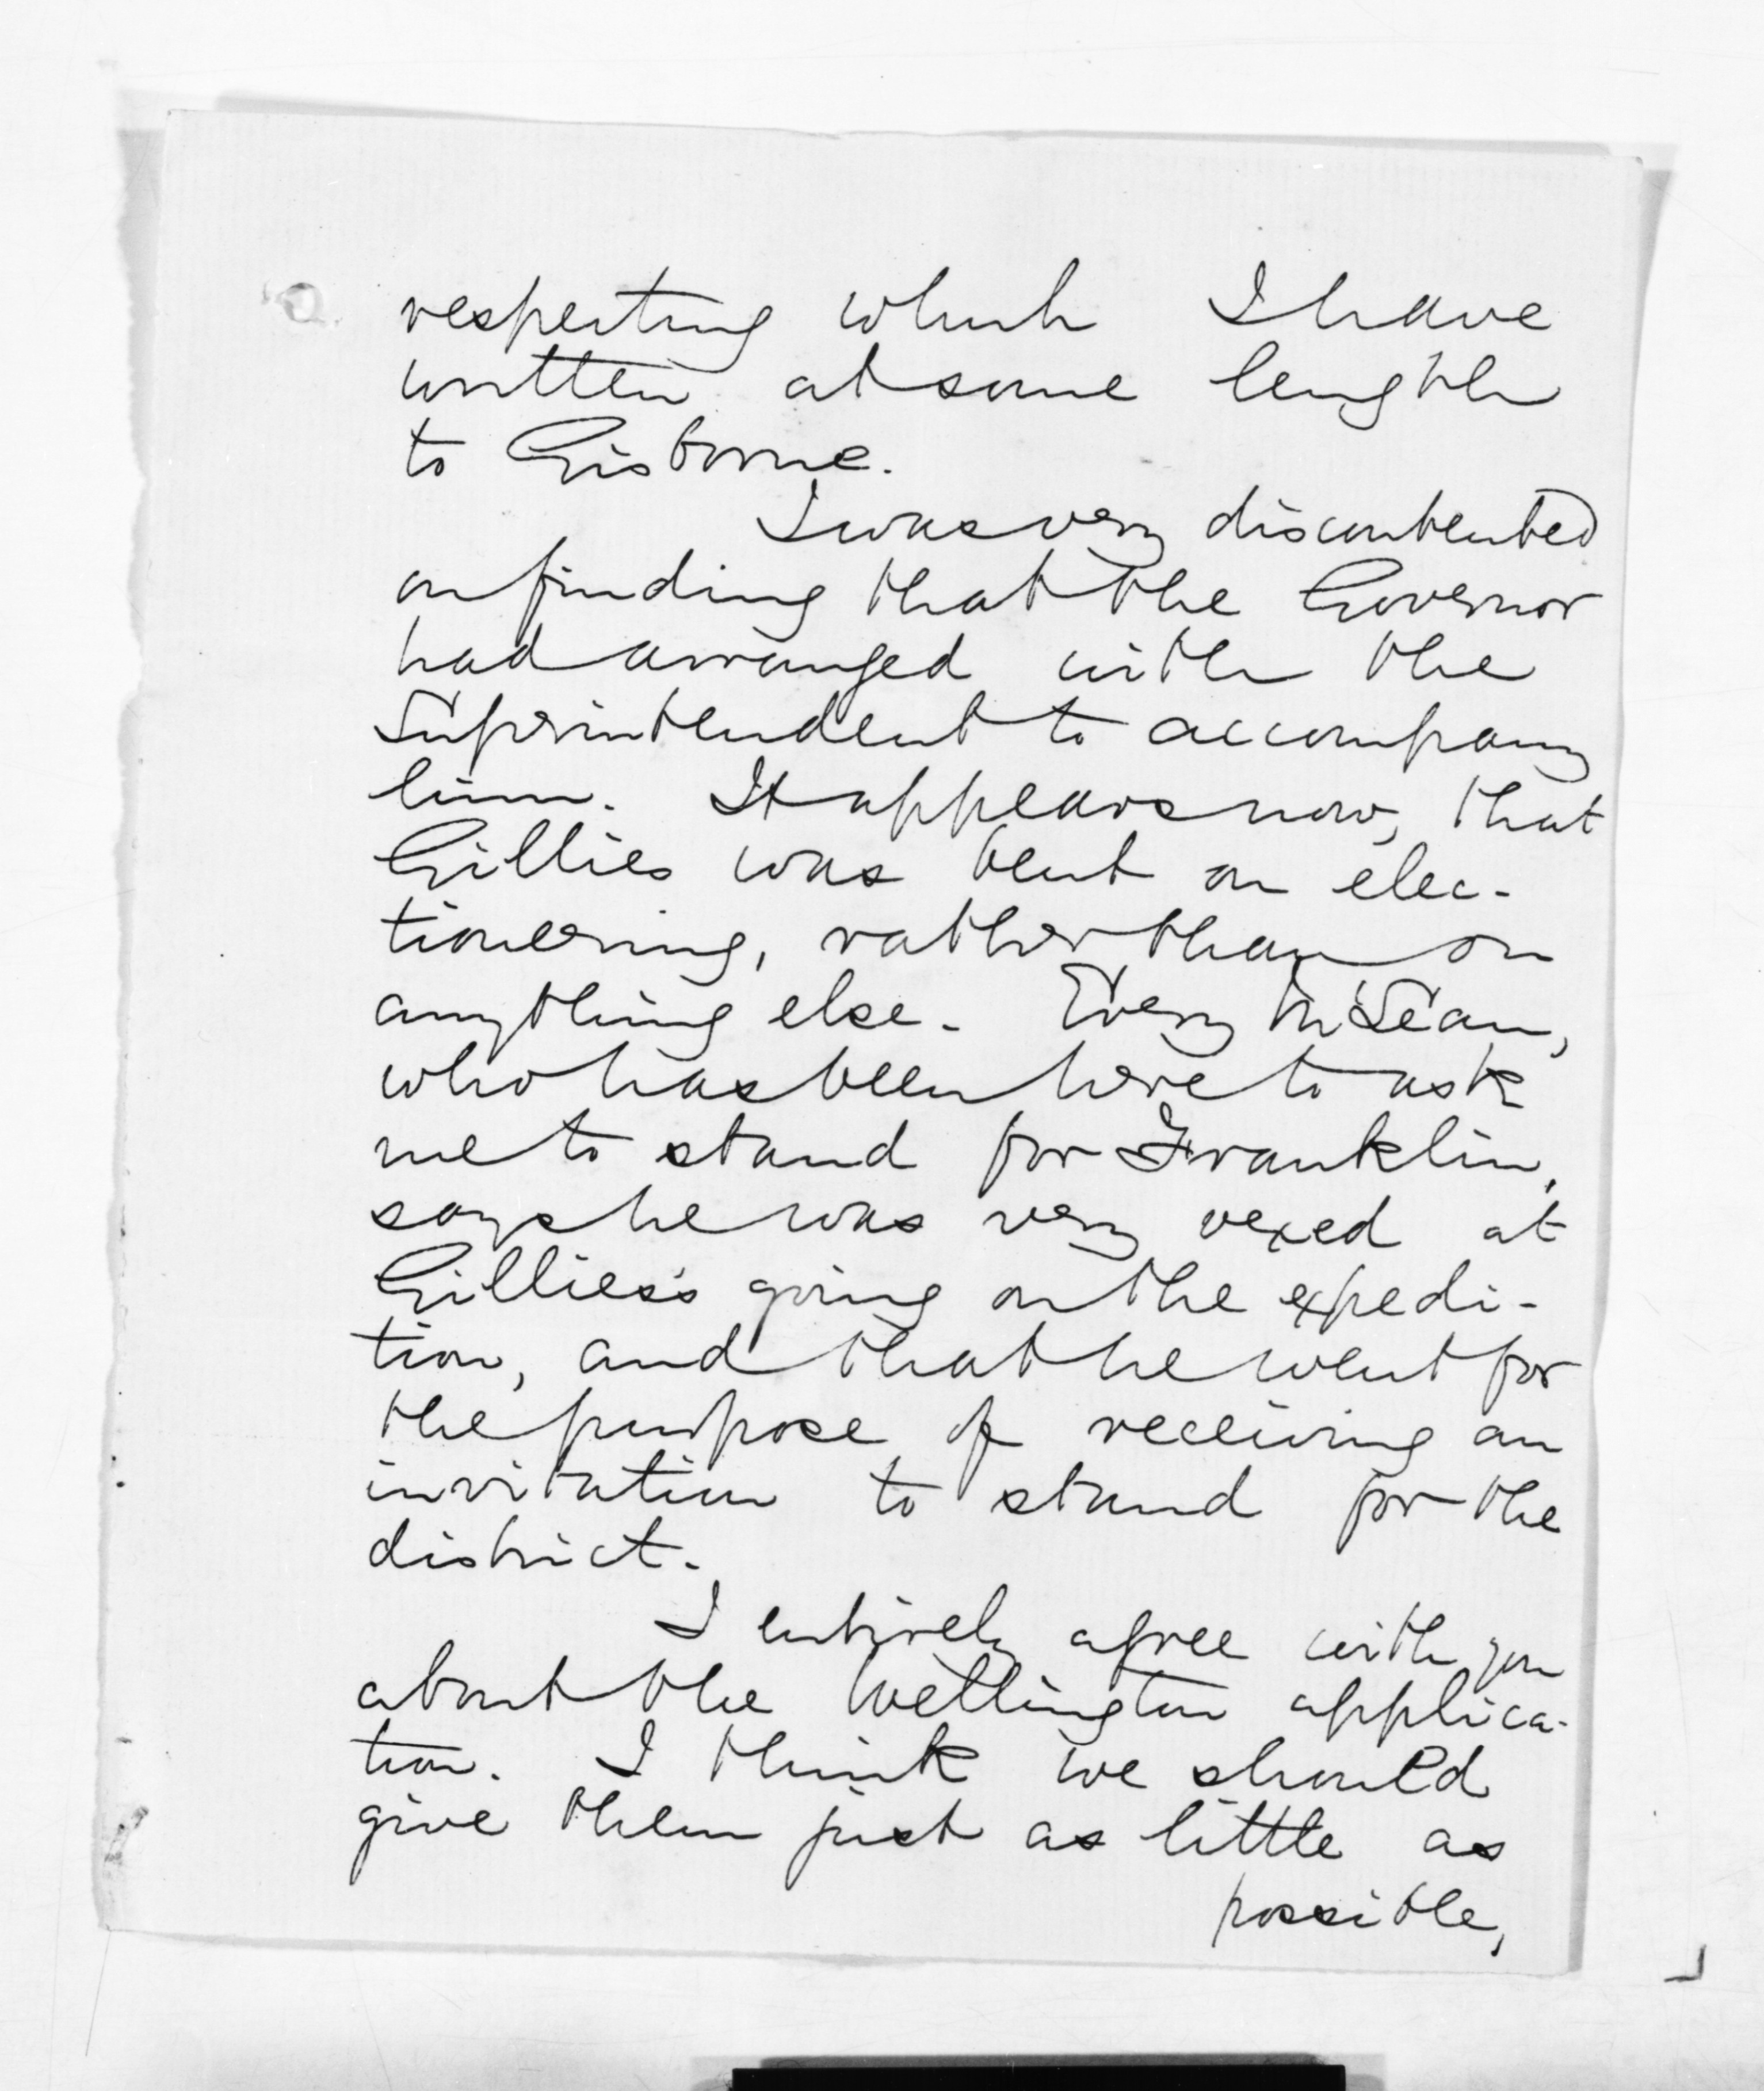 respecting which I have
written at some length
to Gisborne.
I was very discontented
on finding that the Governor
had arranged with the
Superintendent to accompany
him. It appears now, that
Gillies was bent on elec-
tioneering, rather than on
anything else. Every McLean,
who has been here to ask
me to stand for Franklin,
says he was very vexed at
Gillies's going on the expedi-
tion, and that he went for
the purpose of receiving an
invitation to stand for the
district.
I entirely agree with you
about the Wellington applica-
tion. I think we should
give them just as little as
possible,